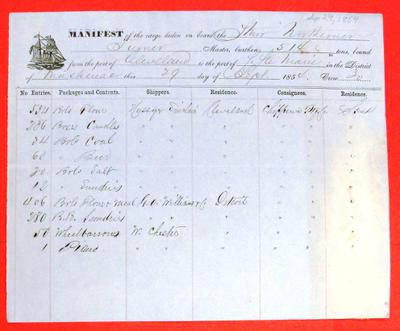 Sep 29, 1854
MANIFEST of the cargo laden on board the Northerner
Turner Master, burthen 514 tons, bound
from the port of Cleveland to the port of Ste Marie in the District
of Mackinac this 29 day of Sept 1854. Crew
No. Entries. Packages and Contents. Shippers. Residence. Consignees. Residence.
554 Bbls Flour Cleveland
206 Boxes Candles
24 Bbls Coal
60 " Beer
20 Bbls Salt
12 " Sundries
406 Bbls Flour & meal Williams Detroit
280 B.B. Sundries
58 Wheelbarrows W. Chester
1 Piano